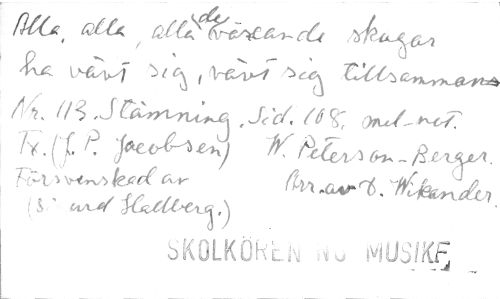 Alla, alla, alla de växande skuggar
ha vävt sig, vävt sig tillsammans
Nr. 113. Stämning. Sid. 108. mel-not.
Tx. (J. P. Jacobsen) W. Peterson-Berger.
Försvenskad av Arr. av D. Wikander.
( Hallberg.)
SKOLKÖREN MUSIK